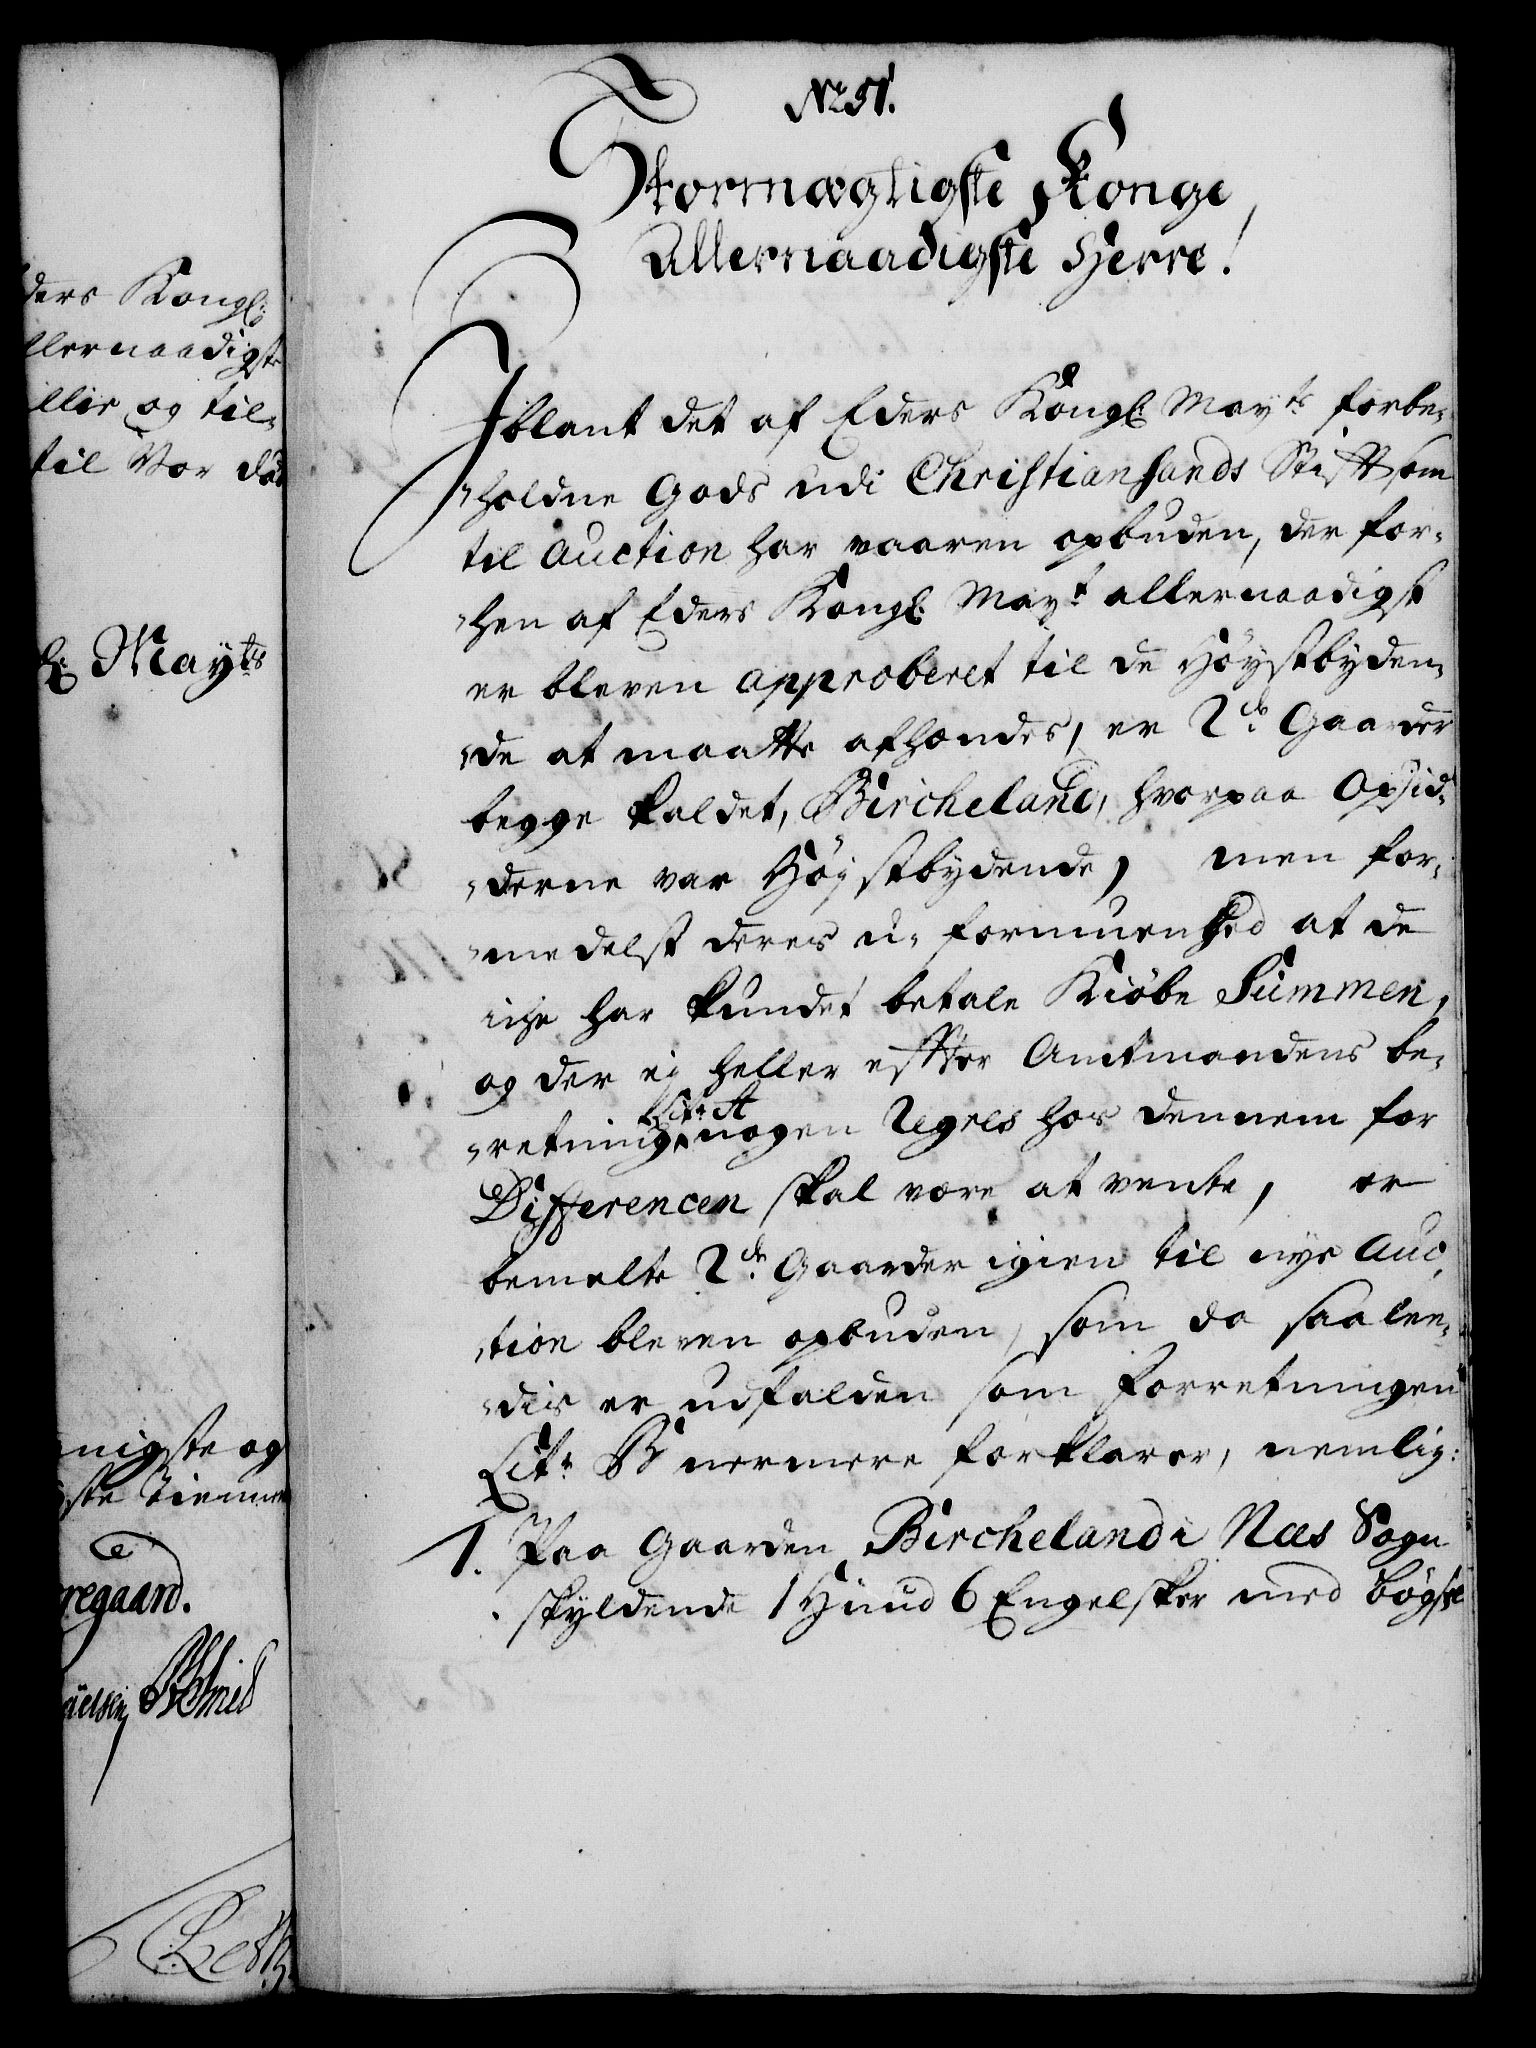 ders Kongl:
llernaadigst
illie og til-
til Vor dø
l: Mayts
nigste og
ste Tienner
regaard.
Nr 51.
Stormægtigste Konge,
Allernaadigste Herre!
Iblant det af Eders Kongl: Mayts forbe-
holdne Gods udi Christiansands Stift som
til Auction har vaaren opbuden, der for-
hen af Eders Kongl: Mayt allernaadigst
er bleven approberet til de Høystbyden-
de at maatte afhændes, er 2de Gaarder
begge kaldet, Bircheland, hvorpaa Opsid-
derne var Høystbydende, men for-
medelst deres u-formuenhed at de
iche har kundet betale Kiøbe Summen,
og der ej heller efter Amtmandens be-
retning Litr A nogen Regres hos dennem for
Differencen skal være at vente, er
bemelte 2de Gaarder igien til nye Auc-
tion bleven opbuden, som da saalee-
dis er udfalden som forretningen
Litr B nermere forklarer, nemlig:
1. Paa Gaarden Bircheland i Næs Sogn
skyldende 1 Huud 6 Engelsker med bøgsel